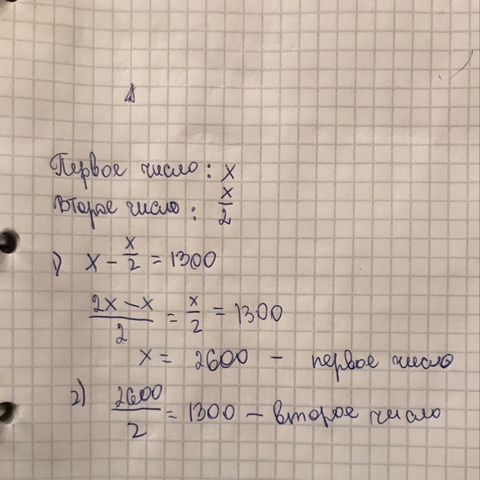 Первое число: x
Второе число: x/2
1) x - x/2 = 1300
(2x - x)/2 = x/2 = 1300
x = 2600 - первое число
2) 2600/2 = 1300 - второе число